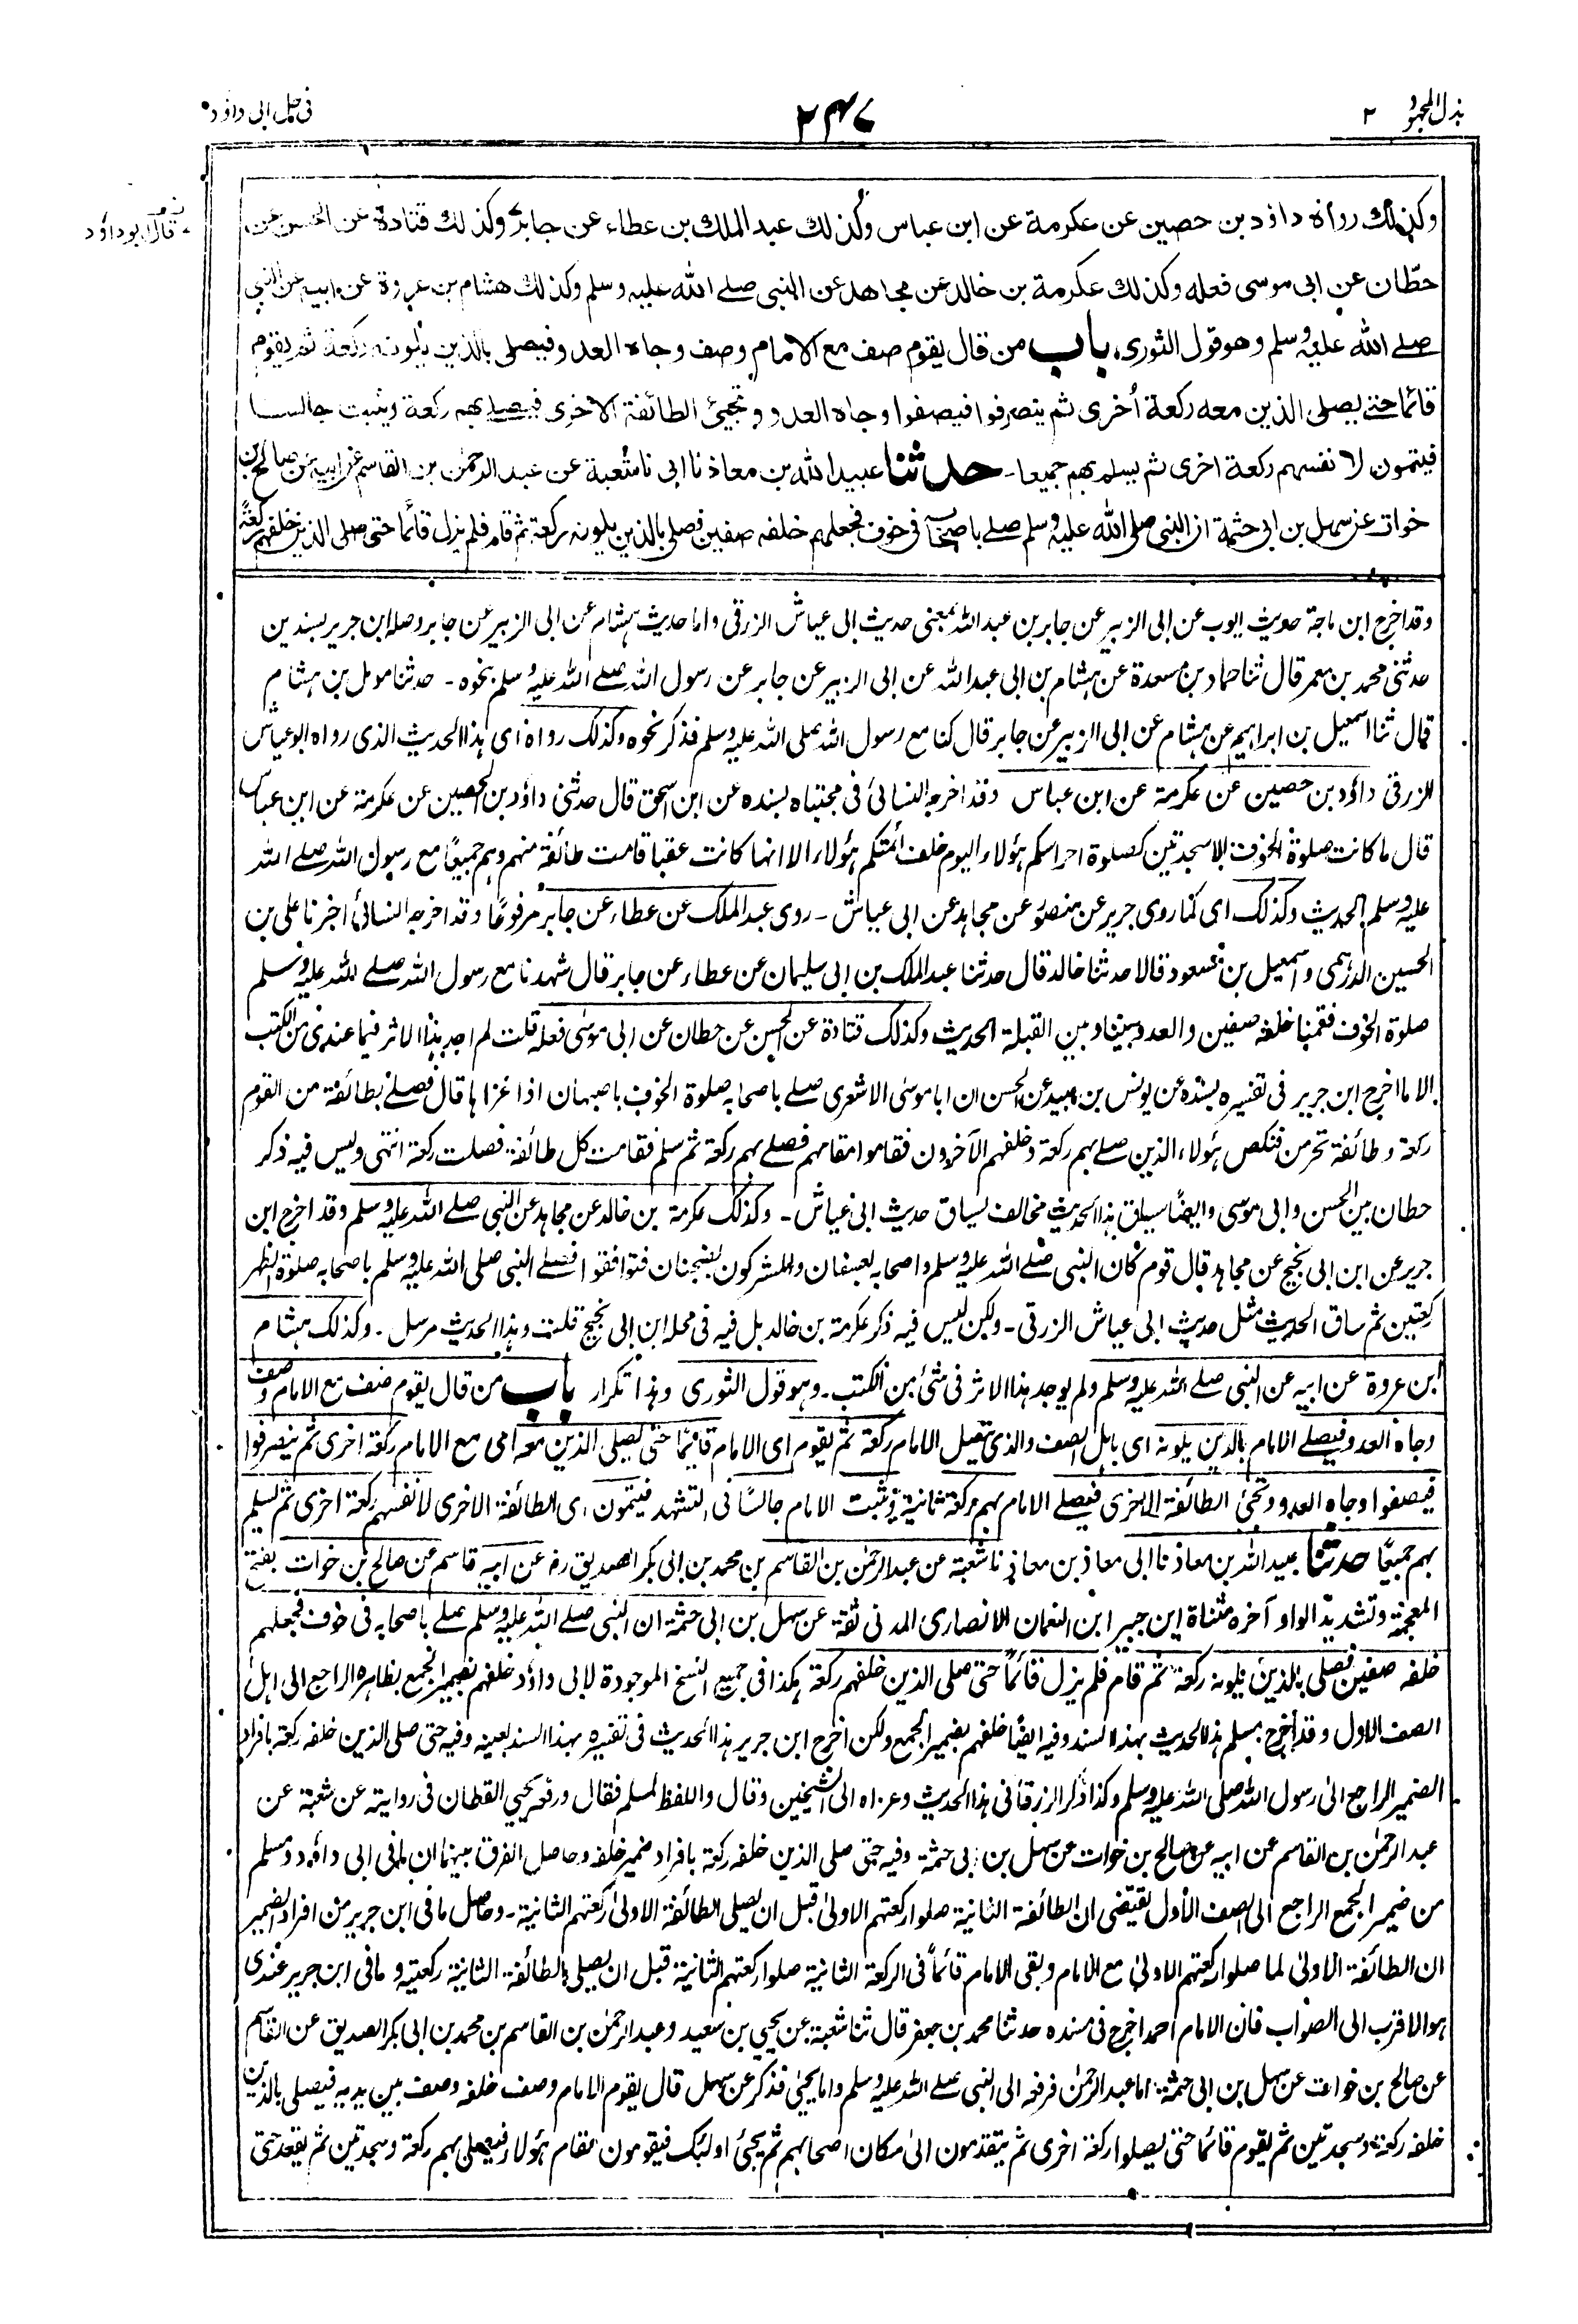 بذل المجهود ٢
٢٤٧
في حل ابى داؤد
قال ابوداؤد
وكذلك رواه داؤد بن حصين عن عكرمة عن ابن عباس وكذلك عبد الملك بن عطاء عن جابر وكذلك قتادة عن الحسن عن
حطّان عن ابى موسى فعله وكذلك عكرمة بن خالد عن مجاهد عن النبي صلے الله عليه وسلم وكذلك هشام بن عروة عن ابيه عن النبي
صلے الله عليه وسلم وهو قول الثورى، باب من قال يقوم صف مع الامام وصف وجاه العدو فيصلى بالذين يلونه ركعة ثم يقوم
قائما حتے يصلى الذين معه ركعة أخرى ثم ينصرفوا فيصفوا وجاه العدو و تجيئ الطائفة الاخرى فيصلے بهم ركعة ويثبت جالسا
فيتمون لانفسهم ركعة اخرى ثم يسلم بهم جميعا - حدثنا عبيد الله بن معاذ نا ابى نا شعبة عن عبد الرحمن بن القاسم عن ابيه عن صالح بن
خوات عن سهل بن ابى حثمة ان النبي صلى الله عليه وسلم صلے باصحابه فى خوف فجعلهم خلفه صفين فصلى بالذين يلونه ركعة ثم قام فلم يزل قائما حتى صلى الذين خلفهم ركعة
وقد اخرج ابن ماجة حديث ايوب عن ابى الزبير عن جابر بن عبد الله بمعنى حديث ابى عياش الزرقى واما حديث هشام عن ابى الزبير عن جابر وصله ابن جرير بسندين
حدثنى محمد بن معمر قال ثنا حماد بن مسعدة عن هشام بن ابى عبد الله عن ابى الزبير عن جابر عن رسول الله صلے الله عليه وسلم بنحوه - حدثنا مومل بن هشام
قال ثنا اسمعيل بن ابراهيم عن هشام عن ابى الزبير عن جابر قال كنا مع رسول الله صلى الله عليه وسلم فذكر نحوه وكذلك رواه اى هذا الحديث الذى رواه ابو عياش
الزرقى داؤد بن حصين عن عكرمة عن ابن عباس وقد اخرجه النسائى فى مجتباه بسنده عن ابن اسحق قال حدثنى داؤد بن الحصين عن عكرمة عن ابن عباس
قال ما كانت صلوة الخوف الا سجدتين كصلوة احراسكم هؤلاء اليوم خلف ائمتكم هؤلاء الا انها كانت عقبا قامت طائفة منهم وهم جميعًا مع رسول الله صلے الله
عليه وسلم الحديث وكذلك اى كما روى جرير عن منصور عن مجاهد عن ابى عياش - روى عبد الملك عن عطاء عن جابر مرفوعًا وقد اخرجه النسائى اخبرنا على بن
الحسين الدرهمى و اسمعيل بن مسعود قالا حدثنا خالد قال حدثنا عبد الملك بن ابى سليمان عن عطاء عن جابر قال شهدنا مع رسول الله صلے الله عليه وسلم
صلوة الخوف فقمنا خلفه صفين والعدو بيننا وبين القبلة الحديث وكذلك قتادة عن الحسن عن حطان عن ابى موسى فعله قلت لم اجد هذا الاثر فيما عندى من الكتب
الا ما اخرج ابن جرير فى تفسيره بسنده عن يونس بن عبيد عن الحسن ان ابا موسى الاشعرى صلے باصحابه صلوة الخوف باصبهان اذا غزاها قال فصلے بطائفة من القوم
ركعة وطائفة تحرس فنكص هؤلاء الذين صلے بهم ركعة وخلفهم الآخرون فقاموا مقامهم فصلے بهم ركعة ثم سلم فقامت كل طائفة فصلت ركعة انتهى وليس فيه ذكر
حطان بين الحسن وابى موسى وايضًا سياق هذا الحديث مخالف لسياق حديث ابى عياش - وكذلك عكرمة بن خالد عن مجاهد عن النبي صلے الله عليه وسلم وقد اخرج ابن
جرير عن ابن ابى نجيح عن مجاهد قال قوم كان النبى صلے الله عليه وسلم واصحابه بعسفان والمشركون بضجنان فتوافقوا فصلے النبي صلى الله عليه وسلم باصحابه صلوة الظهر
ركعتين ثم ساق الحديث مثل حديث ابى عياش الزرقى - ولكن ليس فيه ذكر عكرمة بن خالد بل فيه فى محله ابن ابى نجيح قلت وهذا الحديث مرسل - وكذلك هشام
ابن عروة عن ابيه عن النبى صلے الله عليه وسلم ولم يوجد هذا الاثر فى شئ من الكتب - وهو قول الثورى وهذا تكرار باب من قال يقوم صف مع الامام وصف
وجاه العدو فيصلے الامام بالذين يلونه اى باهل الصف والذى يتصل الامام ركعة ثم يقوم اى الامام قائمًا حتى يصلى الذين معه اى مع الامام ركعة اخرى ثم ينصرفوا
فيصفوا وجاه العدو و تجئ الطائفة الاخرى فيصلے الامام بهم ركعة ثانية ويثبت الامام جالسًا فى التشهد فيتمون اى الطائفة الاخرى لانفسهم ركعة اخرى ثم يسلم
بهم جميعًا حدثنا عبيد الله بن معاذ نا ابى معاذ بن معاذ نا شعبة عن عبد الرحمٰن بن القاسم بن محمد بن ابى بكر الصديق رض عن ابيه قاسم عن صالح بن خوات بفتح
المعجمة وتشديد الواو آخره مثناة ابن جبير ابن النعمان الانصارى المدنى ثقة عن سهل بن ابى حثمة ان النبى صلے الله عليه وسلم صلے باصحابه فى خوف فجعلهم
خلفه صفين فصلى بالذين يلونه ركعة ثم قام فلم يزل قائمًا حتى صلى الذين خلفهم ركعة هكذا فى جميع النسخ الموجودة لابى داؤد خلفهم بضمير الجمع بظاهره الراجع الى اهل
الصف الاول وقد اخرج مسلم هذا الحديث بهذا السند وفيه ايضًا خلفهم بضمير الجمع ولكن اخرج ابن جرير هذا الحديث فى تفسيره بهذا السند بعينه وفيه حتى صلى الذين خلفه ركعة بافراد
الضمير الراجع الى رسول الله صلى الله عليه وسلم وكذا ذكر الزرقانى هذا الحديث وعزاه الى الشيخين وقال واللفظ لمسلم فقال ورفعه يحيى القطان فى روايته عن شعبة عن
عبد الرحمٰن بن القاسم عن ابيه عن صالح بن خوات عن سهل بن ابى حثمة وفيه حتى صلى الذين خلفه ركعة بافراد ضمير خلفه وحاصل الفرق بينهما ان ما فى ابى داؤد ومسلم
من ضمير الجمع الراجع الى الصف الأول يقتضى ان الطائفة الثانية صلوا ركعتهم الاولى قبل ان يصلى الطائفة الاولى ركعتهم الثانية - وحاصل ما فى ابن جرير من افراد الضمير
ان الطائفة الاولى لما صلوا ركعتهم الاولى مع الامام وبقى الامام قائمًا فى الركعة الثانية صلوا ركعتهم الثانية قبل ان يصلى الطائفة الثانية ركعتيه و ما فى ابن جرير عندى
هو الاقرب الى الصواب فان الامام احمد اخرج فى مسنده حدثنا محمد بن جعفر قال ثنا شعبة عن يحيى بن سعيد و عبد الرحمٰن بن القاسم بن محمد بن ابى بكر الصديق عن القاسم
عن صالح بن خوات عن سهل بن ابى حثمة اما عبد الرحمٰن فرفعه الى النبى صلے الله عليه وسلم واما يحيىٰ فذكر عن سهل قال يقوم الامام وصف خلفه وصف بين يديه فيصلى بالذين
خلفه ركعة وسجدتين ثم يقوم قائما حتى يصلوا ركعة اخرى ثم يتقدمون الى مكان اصحابهم ثم يجئ اولئك فيقومون مقام هؤلاء فيصلى بهم ركعة وسجدتين ثم يقعد حتى